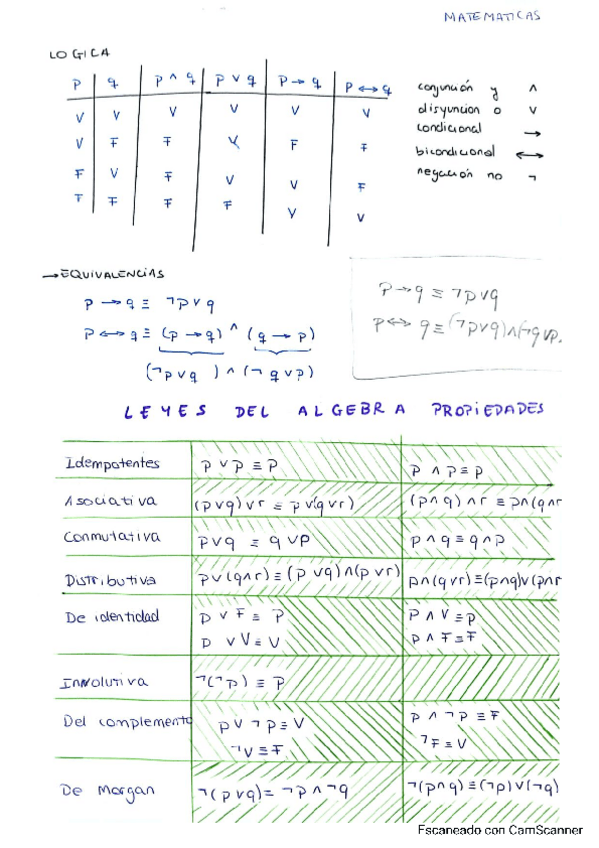 MATEMATICAS
LOGICA
p q p ∧ q p ∨ q p → q p ↔ q
V V V V V V
V F F V F F
F V F V V F
F F F F V V
conjunción y ∧
disyuncion o ∨
condicional →
bicondicional ↔
negación no ¬
→ EQUIVALENCIAS
p → q ≡ ¬p ∨ q
p ↔ q ≡ (p → q) ∧ (q → p)
(¬p ∨ q ) ∧ (¬ q ∨ p)
p → q ≡ ¬p ∨ q
p ↔ q ≡ (¬p ∨ q) ∧ (¬q ∨ p.
LEYES DEL ALGEBRA PROPIEDADES
Idempotentes p ∨ p ≡ p p ∧ p ≡ p
Asociativa (p ∨ q) ∨ r ≡ p ∨ (q ∨ r) (p ∧ q) ∧ r ≡ p ∧ (q ∧ r
Conmutativa p ∨ q ≡ q ∨ p p ∧ q ≡ q ∧ p
Distributiva p ∨ (q ∧ r) ≡ (p ∨ q) ∧ (p ∨ r) p ∧ (q ∨ r) ≡ (p ∧ q) ∨ (p ∧ r
De identidad p ∨ F ≡ p p ∧ V ≡ p
p ∨ V ≡ V p ∧ F ≡ F
Involutiva ¬(¬p) ≡ p
Del complemento p ∨ ¬p ≡ V p ∧ ¬p ≡ F
¬V ≡ F ¬F ≡ V
De Morgan ¬(p ∨ q) = ¬p ∧ ¬q ¬(p ∧ q) ≡ (¬p) ∨ (¬q)
Escaneado con CamScanner